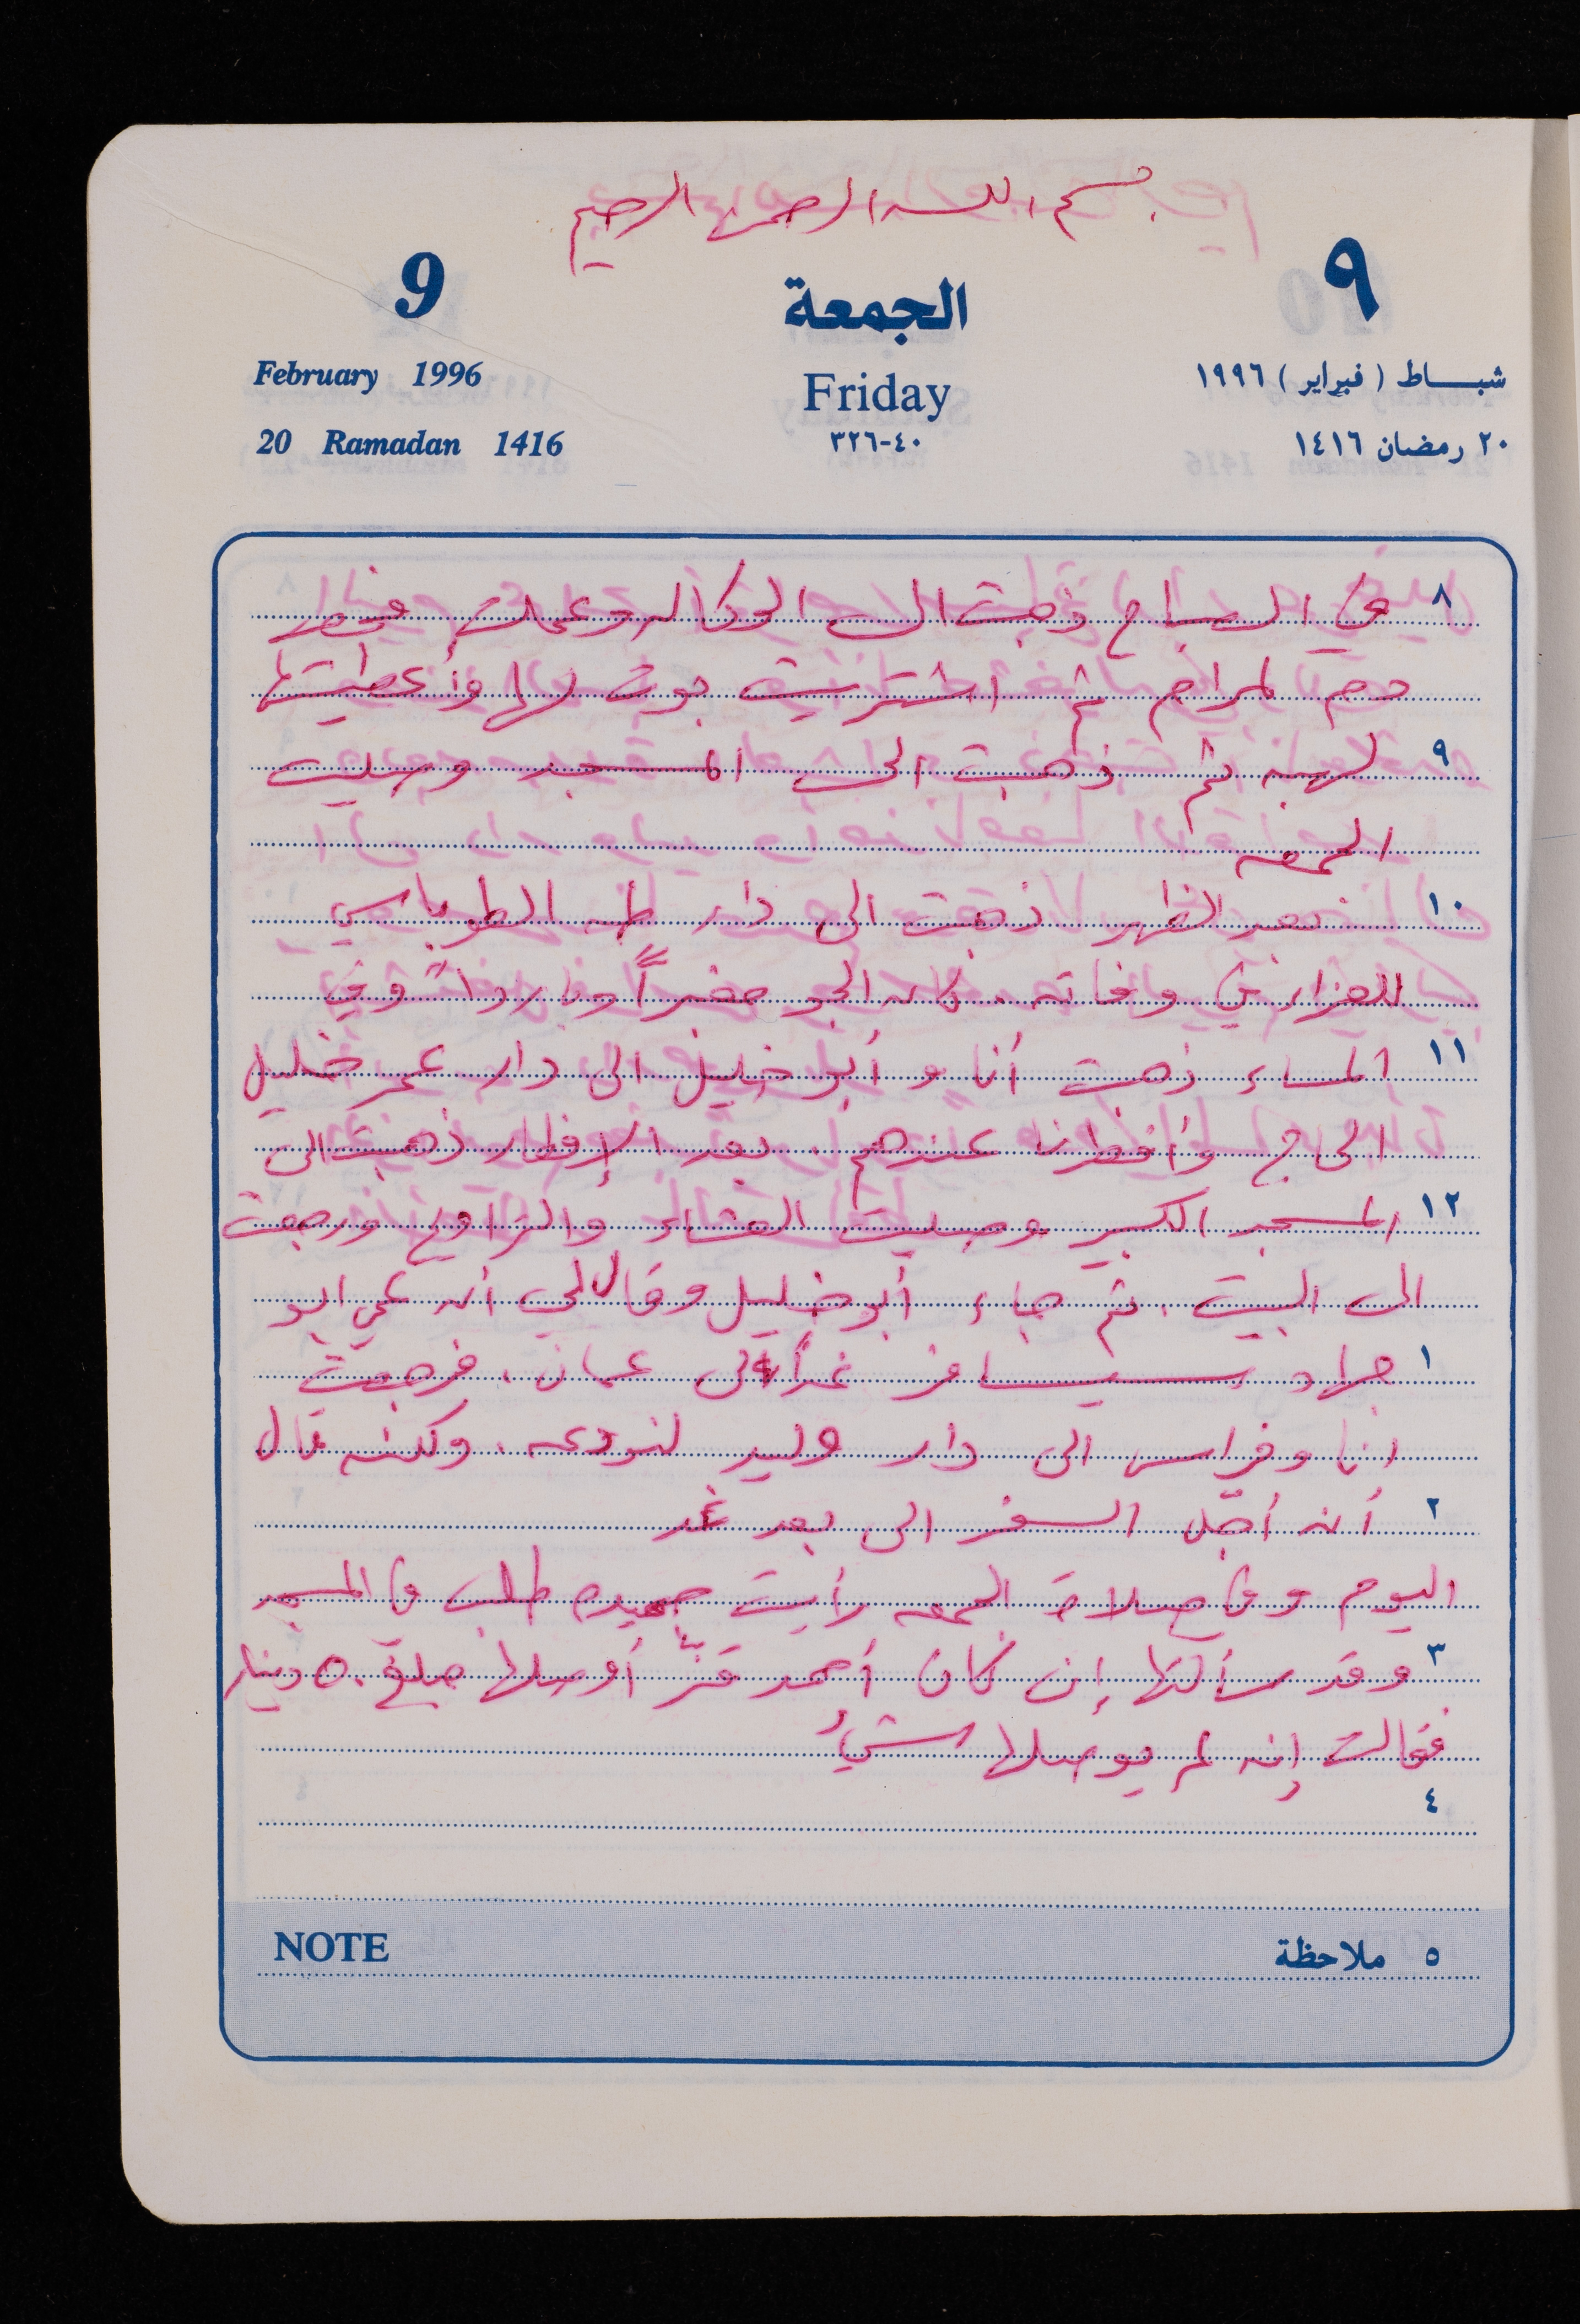 بسم الله الرحمن الرحيم
9 الجمعة ٩
February 1996 Friday شباط (فبراير) ١٩٩٦
20 Ramadan 1416 ٤٠-٣٢٦ ٢٠ رمضان ١٤١٦
٨ في الصباح ذهبت الى الوكاله وعملت فحص
دم لمرام ثم اشتريت بوت لها وأعطيتها
٩ لهبه ثم ذهبت الى المسجد وصليت
الجمعه
١٠ بعد الظهر ذهبت الى دار طه الطوباسي
للعزاء في وفاته. كان الجو مغبراً وبارداً وفي
١١ المساء ذهبت أنا و أبو خليل الى دار عمر خليل
الحاج وأفطرنا عندهم. بعد الإفطار ذهبت الى
١٢ المسجد الكبير وصليت العشاء والتراويح ورجعت
الى البيت. ثم جاء أبو خليل وقال لي أنه عمي ابو
١ جهاد سيسافر غداً الى عمان. فرجعت
انا وفراس الى دار وليد لنودعه. ولكنه قال
٢ أنه أجّل السفر الى بعد غد
اليوم وفي صلاة الجمعه رأيت طالب في المسجد
٣ وقد سألتها إن كان أحمد أوصلها مبلغ ٥٠ دينار
فقالت إنه لم يوصلها شيءُ
٤
NOTE ٥ ملاحظة